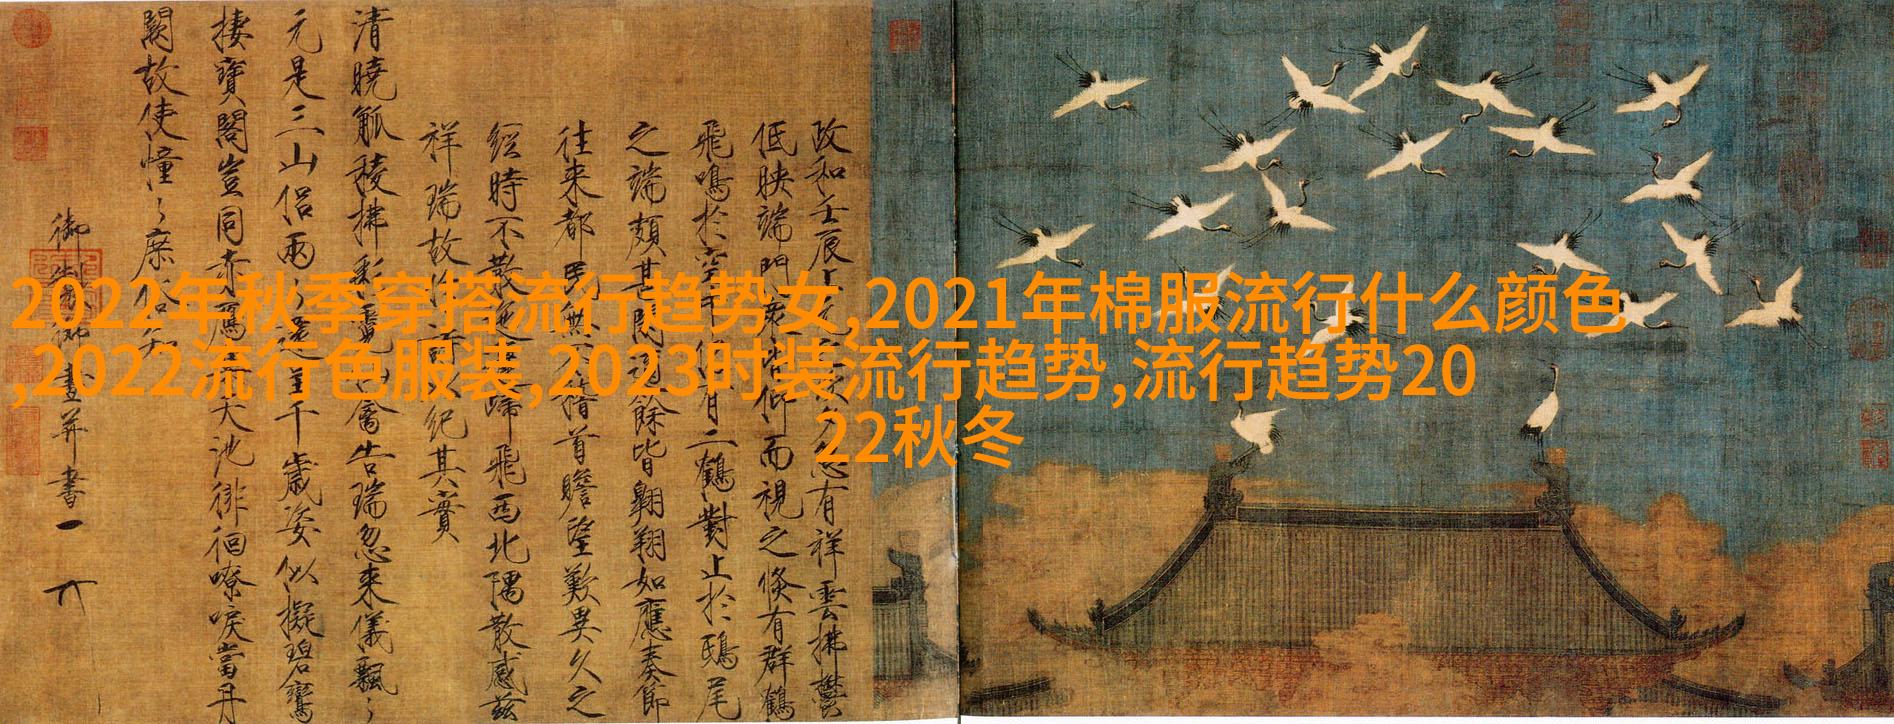 2022年秋季穿搭流行趋势女,2021年棉服流行什么颜色
,2022流行色服装,2023时装流行趋势,流行趋势20
22秋冬
政和壬辰上元之次夕忽有祥雲拂鬱
低映端門衆皆仰而視之倏有群鶴
飛鳴於空中仍有二鶴對止於鴟尾
之端頗甚閑適餘皆翱翔如應奏節
往來都民無不稽首瞻望歎異久之
經時不散迤邐歸飛西北隅散感茲
祥瑞故作詩以紀其實
清曉觚稜拂彩霓仙禽告瑞忽來儀飄〻
元是三山侶兩〻還呈千歲姿似擬碧鸞
棲寶閣豈同赤鴈集天池徘徊嘹唳當丹
闕故使憧〻庶俗知
御製御畫并書